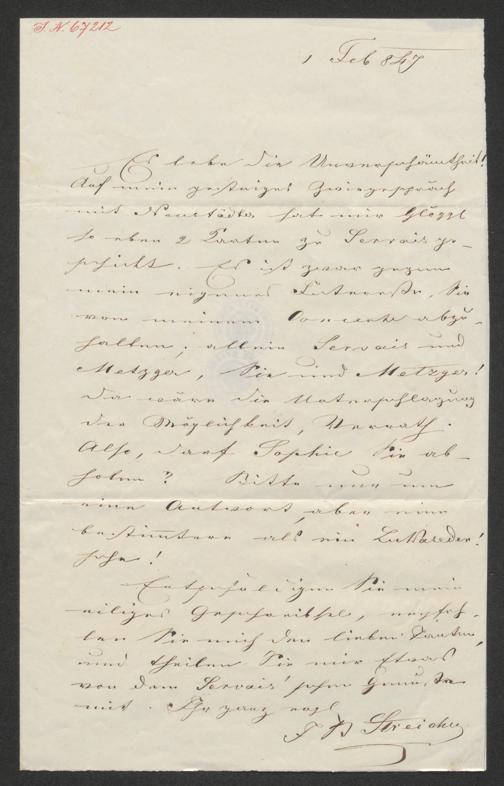 I. N. 67212
1 Feb 847
Es lebe die Unverschämtheit!
Auf mein gestriges Zwiegespräch
mit Neustädter hat mir Glöggl
so eben 2 Karten zu Servais ge-
schickt. Es ist zwar gegen
mein eigenes Interesse, Sie
von meinem Concerte abzu-
halten; allein Servais und
Metzger, Sie und Metzger!
da wäre die Unterschlagung
der Möglichkeit, Verrath.
Also, darf Sophie Sie ab-
holen? Bitte nur um
eine Antwort, aber eine
bestimtere als ein
sehn!
Entschuldigen Sie mein
eiliges Geschreibsel, empfeh-
len Sie mich den lieben Tanten,
und theilen Sie mir etwas
von dem Servais'schen Genusse
mit. Ihr ganz ergb
J B Streicher